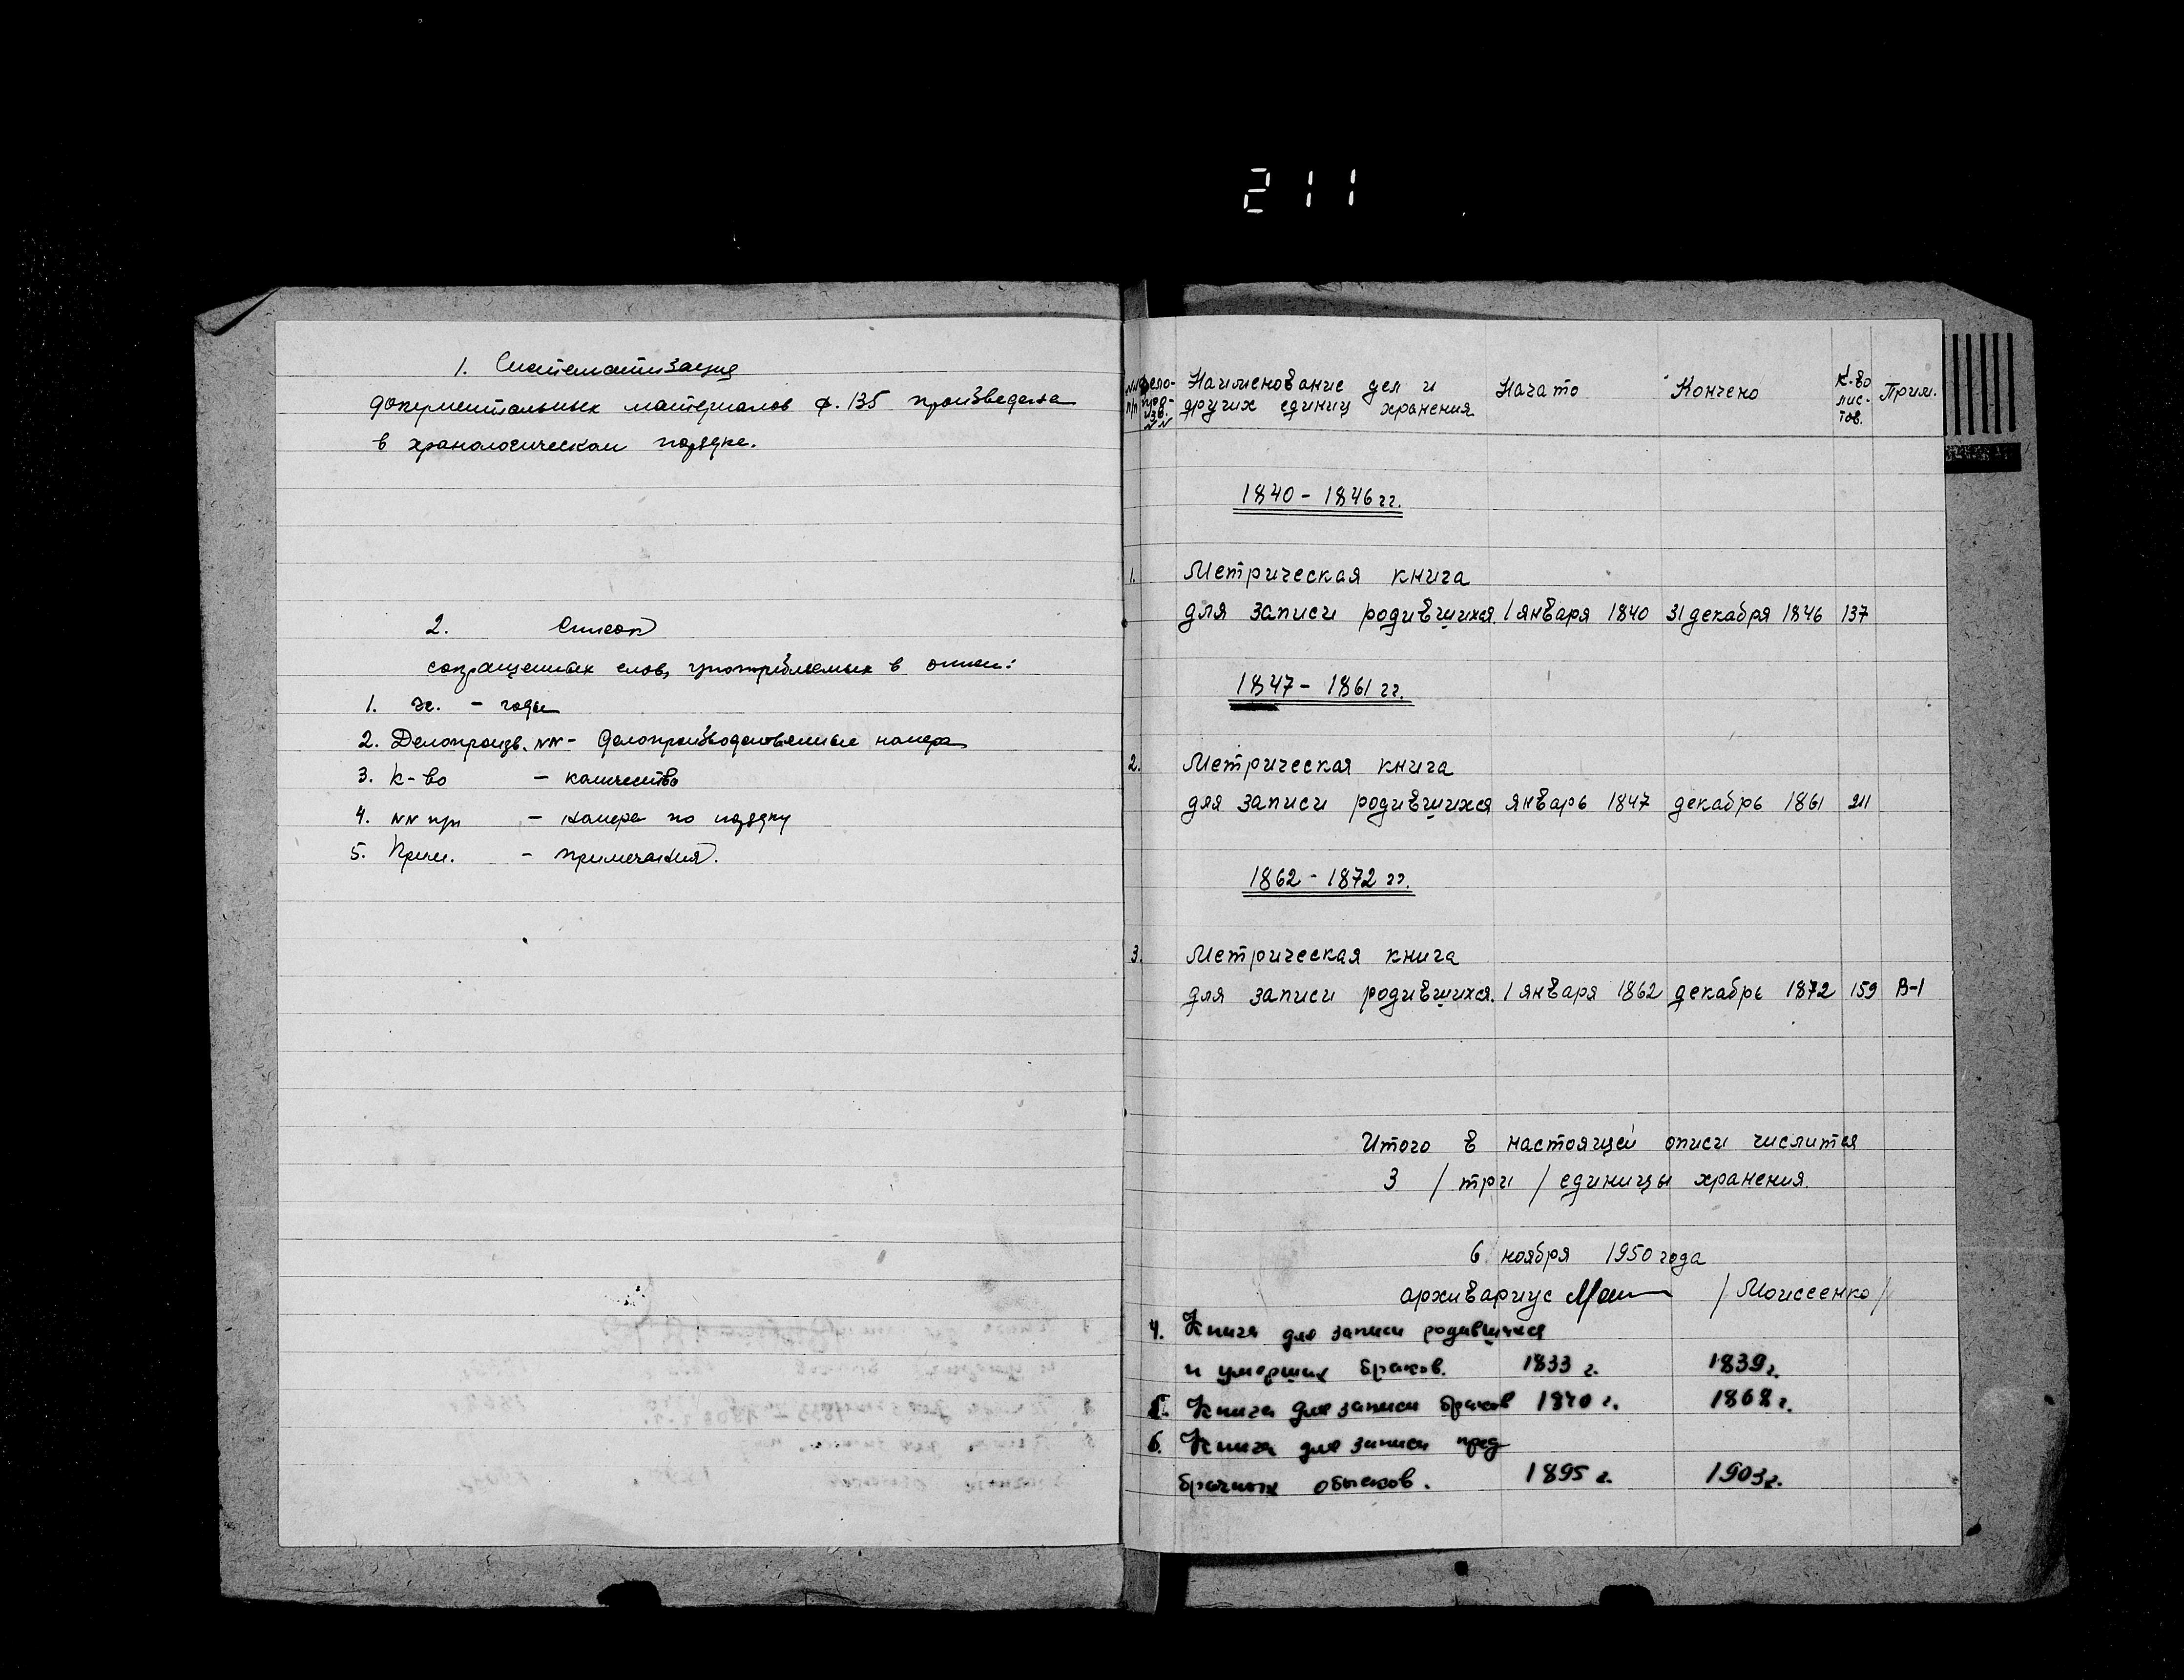 211
1. Систематизация
документальных материалов ф. 135 произведена
в хронологическом порядке.
2. Список
сокращенных слов, употребляемых в описи:
1. гг. - годы
2. Делопроизв. NN - Делопроизводственные номера
3. К-во - количество
4. NN пп - номера по порядку
5. Прим. - примечания.
NN п/п
Дело-произв. NN
Наименование дел и
других единиц хранения
Начато
Кончено
К-во лис-тов.
Прим.
1840 - 1846 гг.
1. Метрическая книга
для записи родившихся. 1 января 1840 31 декабря 1846 137
1847 - 1861 гг.
2. Метрическая книга
для записи родившихся январь 1847 декабрь 1861 211
1862 - 1872 гг.
3. Метрическая книга
для записи родившихся. 1 января 1862 декабрь 1872 159 В-1
Итого в настоящей описи числится
3 /три/ единицы хранения.
6 ноября 1950 года
архивариус /Моисеенко/
4. Книга для записи родившихся
и умерших браков. 1833 г. 1839 г.
5. Книга для записи браков 1840 г. 1868 г.
6. Книга для записи пред
брачных обысков. 1895 г. 1903 г.